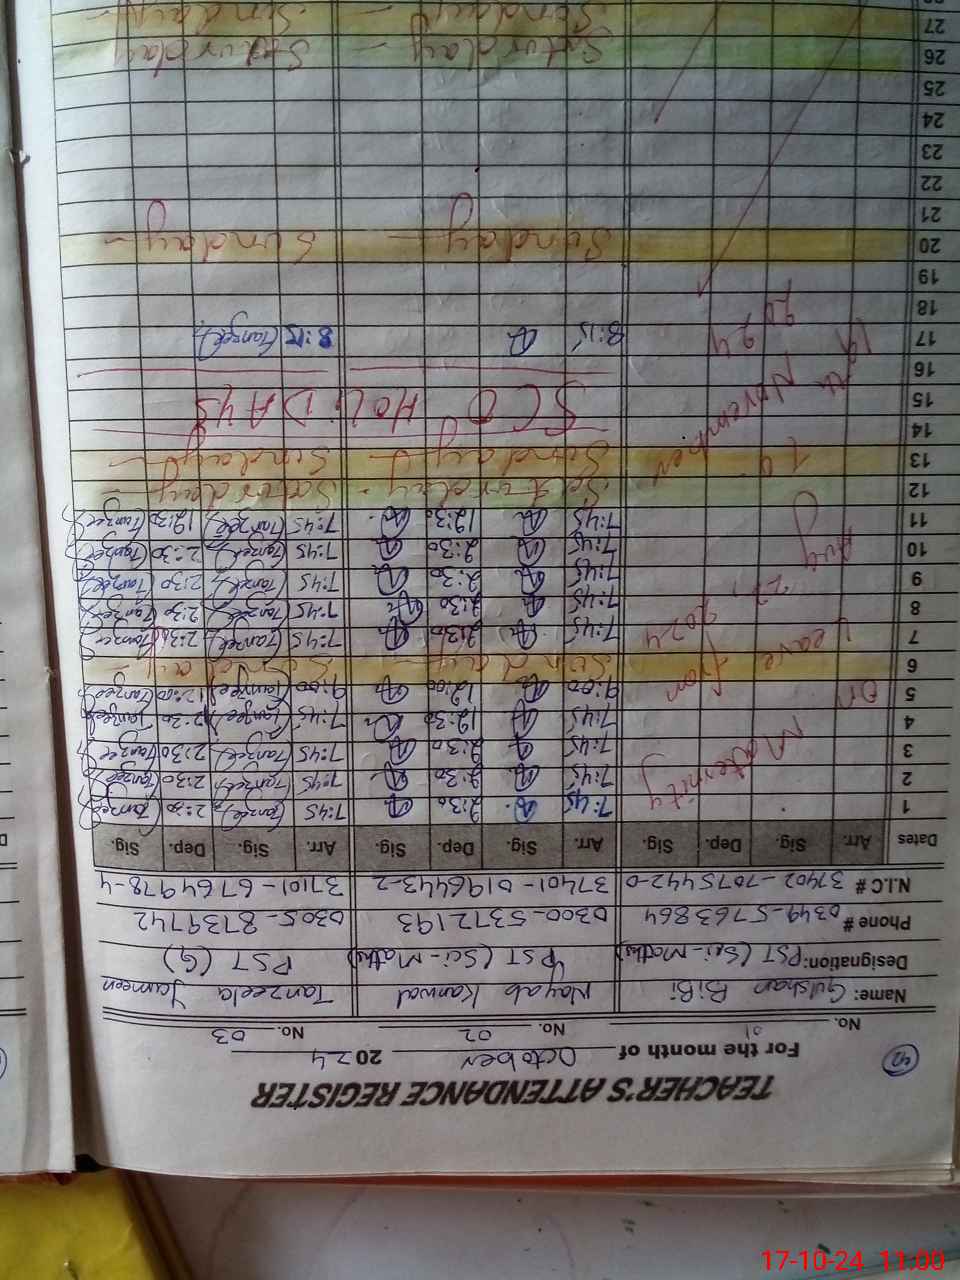 42
TEACHER'S ATTENDANCE REGISTER
For the month of October 2024
No. 01 No. 02 No. 03
Name: Gulshan BiBi Nayab Kanwal Tanzeela Yasmeen
Designation: PST (Sci-Maths) PST (Sci-Maths) PST (G)
Phone # 0349-5763864 0300-5372193 0305-8739742
N.I.C # 37402-7075442-0 37401-0196443-2 37101-6764978-4
Dates Arr. Sig. Dep. Sig. Arr. Sig. Dep. Sig. Arr. Sig. Dep. Sig.
1 7:45 2:30 7:45 Tanzeel 2:30 Tanzeel
2 7:45 2:30 7:45 Tanzeel 2:30 Tanzeel
3 7:45 2:30 7:45 Tanzeel 2:30 Tanzeel
4 7:45 12:30 7:45 Tanzeel 12:30 Tanzeel
5 9:00 12:00 9:00 Tanzeel 12:00 Tanzeel
6 Sunday Sunday
7 7:45 2:30 7:45 Tanzeel 2:30 Tanzeel
8 7:45 2:30 7:45 Tanzeel 2:30 Tanzeel
9 7:45 2:30 7:45 Tanzeel 2:30 Tanzeel
10 7:45 2:30 7:45 Tanzeel 2:30 Tanzeel
11 7:45 12:30 7:45 Tanzeel 12:30 Tanzeel
12 Saturday Saturday
13 Sunday Sunday
14
15 SCO HOLIDAYS
16
17 8:15 8:15 Tanzeel
18
19
20 Sunday Sunday
21
22
23
24
25
26 Saturday Saturday
27 Sunday Sunday
On Maternity
Leave from
Aug 22, 2024
to
19 November
2024
17-10-24 11:00